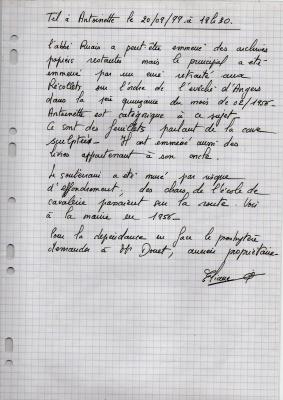 Tel à Antoinette le 20/09/99 à 18h30.
l'abbé Ruais a peut-être emmené des archives
papiers restantes mais le principal a été
emmené par un curé retraité aux
Récollets sur l'ordre de l'évêché d'Angers
dans la 1ère quinzaine du mois de 02/1956-
Antoinette est catégorique à ce sujet.
Ce sont des feuillets parlant de la cave
sculptée - Ils ont emmené aussi des
livres appartenant à son oncle.
Le souterrain a été muré, par risque
d'effondrement, des chars, de l'école de
cavalerie passaient sur la route. Voir
à la mairie en 1956-
Pour la dépendance en face le presbytère
demander à Mr Douet, ancien propriétaire